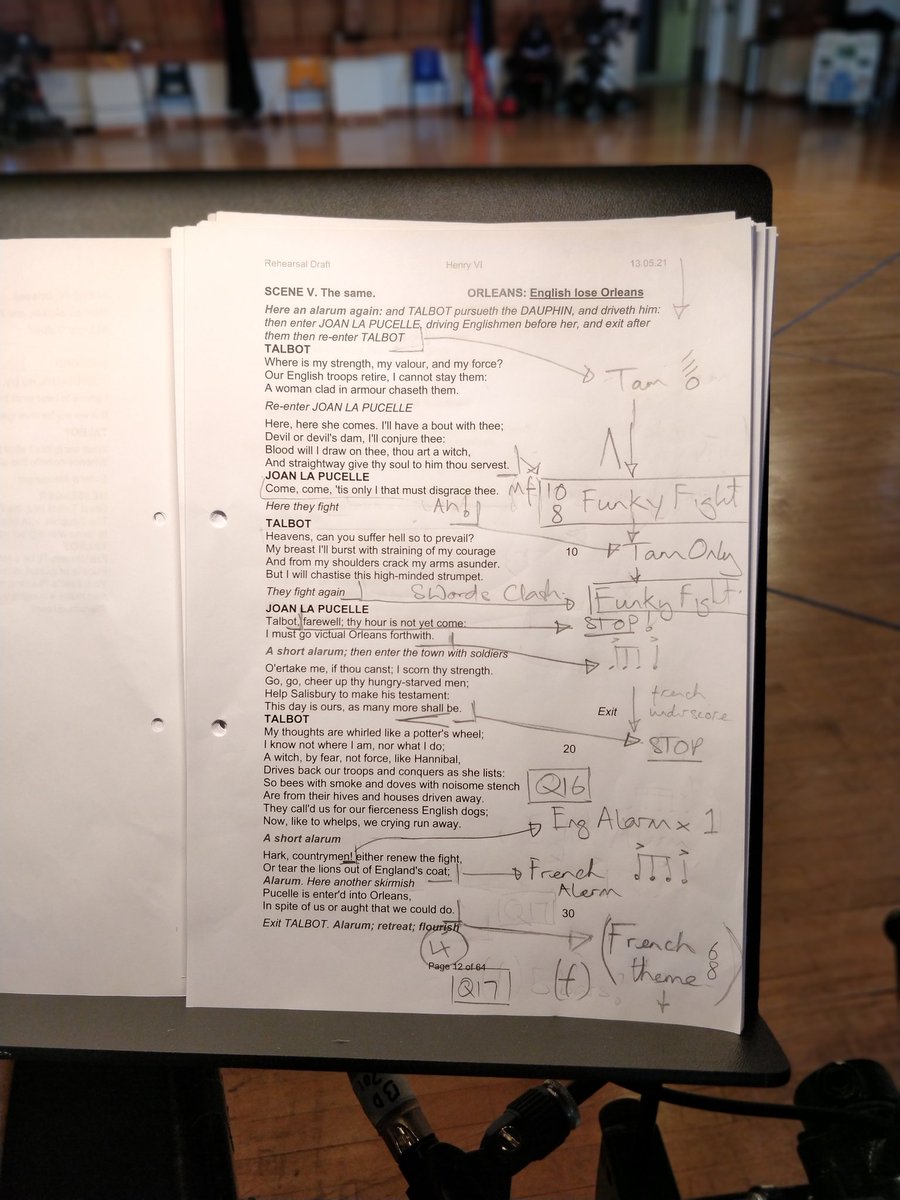 Rehearsal Draft Henry VI 13.05.21
SCENE V. The same. ORLEANS: English lose Orleans
Here an alarum again: and TALBOT pursueth the DAUPHIN, and driveth him:
then enter JOAN LA PUCELLE, driving Englishmen before her, and exit after
them then re-enter TALBOT
TALBOT
Where is my strength, my valour, and my force?
Our English troops retire, I cannot stay them:
A woman clad in armour chaseth them.
Tam
Re-enter JOAN LA PUCELLE
Here, here she comes. I'll have a bout with thee;
Devil or devil's dam, I'll conjure thee:
Blood will I draw on thee, thou art a witch,
And straightway give thy soul to him thou servest.
JOAN LA PUCELLE
Come, come, 'tis only I that must disgrace thee. Mf 10 8 Funky Fight
Here they fight Ah!
TALBOT
Heavens, can you suffer hell so to prevail?
My breast I'll burst with straining of my courage 10 Tam Only
And from my shoulders crack my arms asunder.
But I will chastise this high-minded strumpet.
They fight again Swords Clash Funky Fight
JOAN LA PUCELLE
Talbot, farewell; thy hour is not yet come: STOP!
I must go victual Orleans forthwith.
A short alarum; then enter the town with soldiers
O'ertake me, if thou canst; I scorn thy strength.
Go, go, cheer up thy hungry-starved men;
Help Salisbury to make his testament:
This day is ours, as many more shall be. Exit french underscore
TALBOT
My thoughts are whirled like a potter's wheel; STOP
I know not where I am, nor what I do; 20
A witch, by fear, not force, like Hannibal,
Drives back our troops and conquers as she lists:
So bees with smoke and doves with noisome stench Q16
Are from their hives and houses driven away.
They call'd us for our fierceness English dogs; Eng Alarm x 1
Now, like to whelps, we crying run away.
A short alarum
Hark, countrymen! either renew the fight,
Or tear the lions out of England's coat; French Alarm
Alarum. Here another skirmish
Pucelle is enter'd into Orleans,
In spite of us or aught that we could do. 30
Exit TALBOT. Alarum; retreat; flourish
4 (French theme 6 8)
Page 12 of 64
Q17 (f)